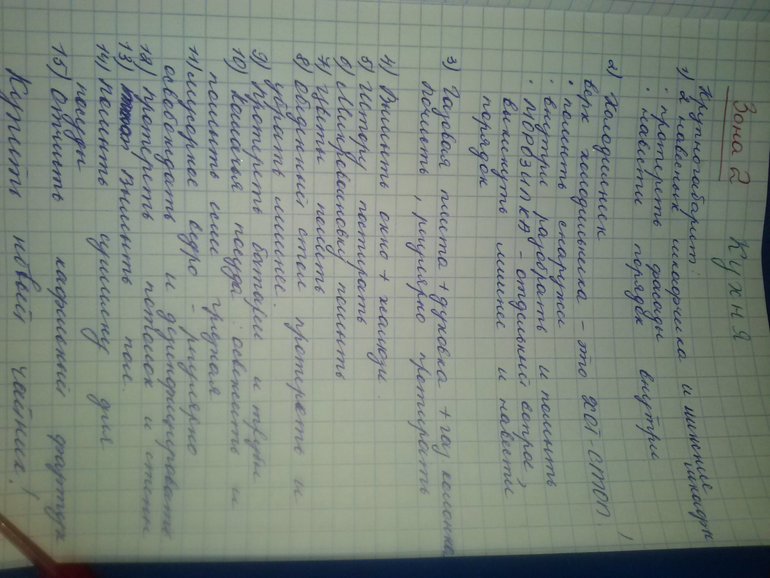 Зона 2 Кухня
Крупногабарит:
1) 2 навесных шкафчика и нижние шкафы
· протереть фасады
· навести порядок внутри
2) Холодильник
верх холодильника - это ХОТ-СПОТ!
· помыть снаружи
· внутри разобрать и помыть
· МОРОЗИЛКА - отдельный вопрос,
выкинуть лишнее и навести
порядок
3) Газовая плита + духовка + газ колонка,
почистить, регулярно протирать
4) Вымыть окно + жалюзи
5) Штору постирать
6) Микроволновку помыть
7) Цветы полить
8) Обеденный стол протереть и
убрать лишнее.
9) Протереть батареи и трубы
10) Кошачья посуда: освежить и
помыть если грязная
11) Мусорное ведро - регулярно
освобождать и дезинфицировать
12) Протереть потолок и стены
13) Вымыть пол.
14) Помыть сушилку для
посуды
15) Отмыть кафельный фартук
Купить новый чайник!